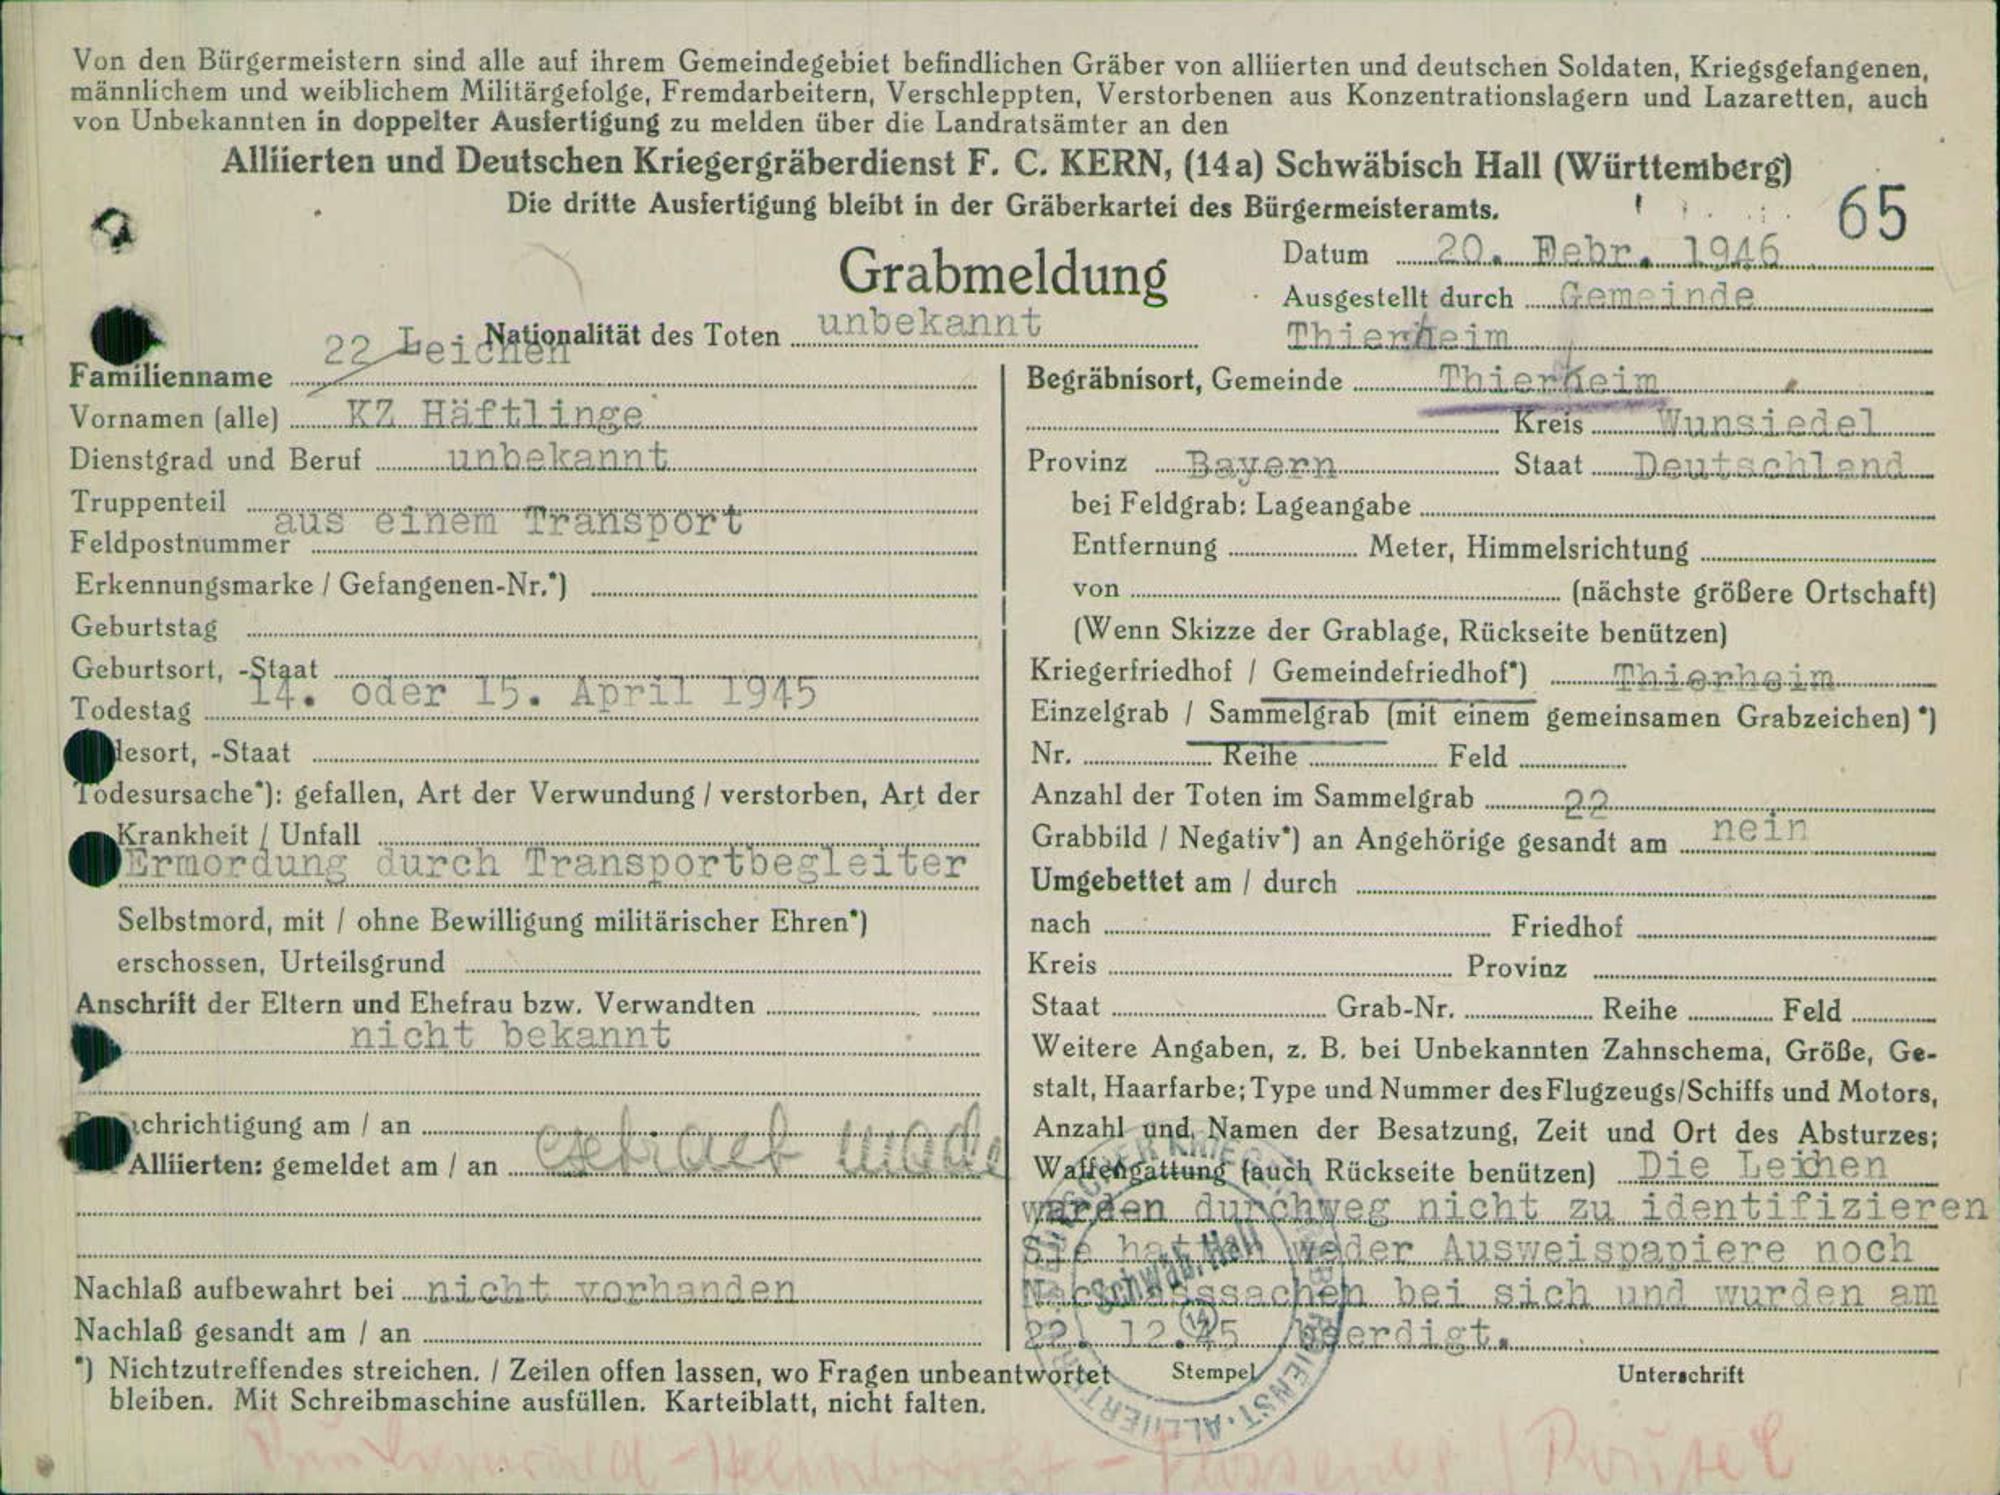 Von den Bürgermeistern sind alle auf ihrem Gemeindegebiet befindlichen Gräber von alliierten und deutschen Soldaten, Kriegsgefangenen,
männlichem und weiblichem Militärgefolge, Fremdarbeitern, Verschleppten, Verstorbenen aus Konzentrationslagern und Lazaretten, auch
von Unbekannten in doppelter Ausfertigung zu melden über die Landratsämter an den
Alliierten und Deutschen Kriegergräberdienst F. C. KERN, (14a) Schwäbisch Hall (Württemberg)
Die dritte Ausfertigung bleibt in der Gräberkartei des Bürgermeisteramts.
65
Grabmeldung
Datum 20. Febr. 1946
Ausgestellt durch Gemeinde
Thierheim
Nationalität des Toten unbekannt
22 Leichen
Familienname
Vornamen (alle) KZ Häftlinge
Dienstgrad und Beruf unbekannt
Truppenteil
aus einem Transport
Feldpostnummer
Erkennungsmarke / Gefangenen-Nr.*)
Geburtstag
Geburtsort, -Staat
14. oder 15. April 1945
Todestag
desort, -Staat
Todesursache*): gefallen, Art der Verwundung / verstorben, Art der
Krankheit / Unfall
Ermordung durch Transportbegleiter
Selbstmord, mit / ohne Bewilligung militärischer Ehren*)
erschossen, Urteilsgrund
Anschrift der Eltern und Ehefrau bzw. Verwandten
nicht bekannt
chrichtigung am / an
Alliierten: gemeldet am / an
Nachlaß aufbewahrt bei nicht vorhanden
Nachlaß gesandt am / an
*) Nichtzutreffendes streichen. / Zeilen offen lassen, wo Fragen unbeantwortet
bleiben. Mit Schreibmaschine ausfüllen. Karteiblatt, nicht falten.
Begräbnisort, Gemeinde Thierheim
Kreis Wunsiedel
Provinz Bayern Staat Deutschland
bei Feldgrab: Lageangabe
Entfernung Meter, Himmelsrichtung
von (nächste größere Ortschaft)
(Wenn Skizze der Grablage, Rückseite benützen)
Kriegerfriedhof / Gemeindefriedhof*) Thierheim
Einzelgrab / Sammelgrab (mit einem gemeinsamen Grabzeichen) *)
Nr. Reihe Feld
Anzahl der Toten im Sammelgrab 22
Grabbild / Negativ*) an Angehörige gesandt am nein
Umgebettet am / durch
nach Friedhof
Kreis Provinz
Staat Grab-Nr. Reihe Feld
Weitere Angaben, z. B. bei Unbekannten Zahnschema, Größe, Ge-
stalt, Haarfarbe; Type und Nummer des Flugzeugs/Schiffs und Motors,
Anzahl und Namen der Besatzung, Zeit und Ort des Absturzes;
Waffengattung (auch Rückseite benützen) Die Leichen
warden durchweg nicht zu identifizieren
Sie hatten weder Ausweispapiere noch
Nachlasssachen bei sich und wurden am
22. 12.45 beerdigt.
Stempel Unterschrift
Schwäb. Hall
DIENST · ALLIIERTER
Buchenwald - Helmbrecht - Flossenbg /